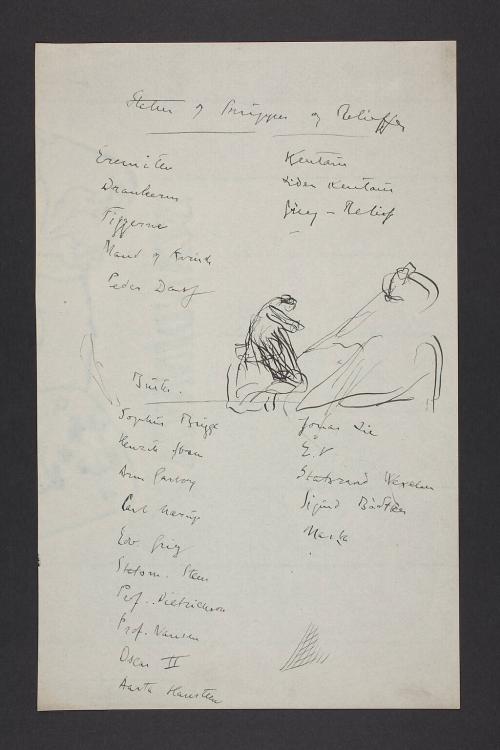 Statuer og Grupper og Relieffer
Eremiten
Drankeren
Tiggerne
Mand og Kvinde
Peder
Kentaur
Liden Kentaur
Grieg - Relief
Büster.
Sophus Bugge
Henrik Ibsen
Arne Garborg
Carl
Edv Grieg
Statsm. Steen
Prof. Dietrichson
Prof. Nansen
Oscar II
Aasta Hansteen
Jonas Lie
E.V
Statsraad Wexelsen
Sigurd Bödtker
Maske